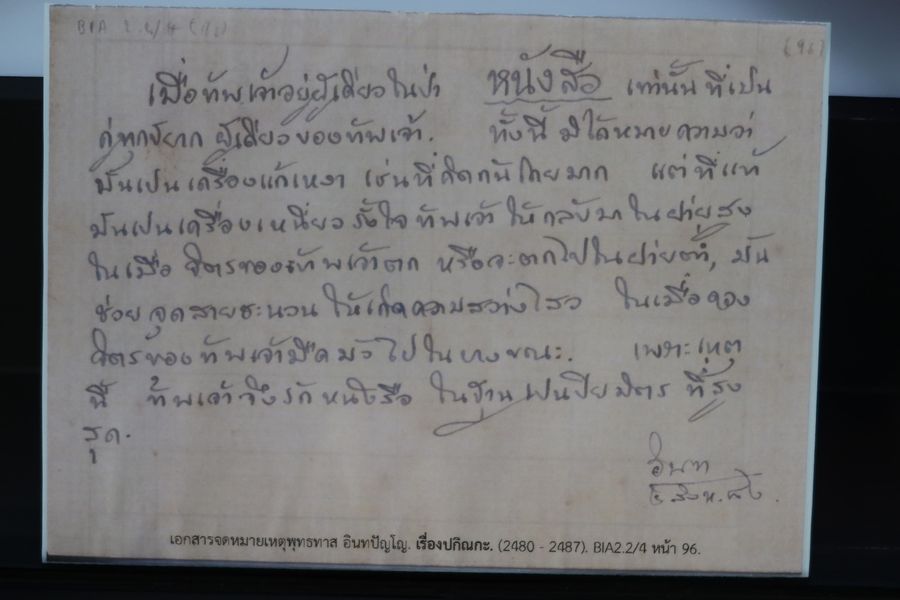 BIA 2.2/4 (96)
(96)
เมื่อข้าพเจ้าอยู่ผู้เดียวในป่า หนังสือ เท่านั้นที่เป็น
คู่ทุกข์ยาก ผู้เดียวของข้าพเจ้า. ทั้งนี้ มิได้หมายความว่า
มันเป็นเครื่องแก้เหงา เช่นที่คิดกันโดยมาก แต่ที่แท้
มันเป็นเครื่องเหนี่ยวรั้งใจข้าพเจ้า ให้กลับมาในฝ่ายสูง
ในเมื่อ จิตรของข้าพเจ้าตก หรือจะตกไปในฝ่ายต่ำ, มัน
ช่วยจุดสายชะนวน ให้เกิดความสว่างไสว ในเมื่อดวง
จิตรของข้าพเจ้ามืดมัวไปในบางขณะ. เพราะเหตุ
นี้ ข้าพเจ้าจึงรักหนังสือ ในฐานเป็นปิยมิตร ที่สูง
สุด.
อินท
๖ สิงห.
เอกสารจดหมายเหตุพุทธทาส อินทปัญโญ. เรื่องปกิณกะ. (2480 - 2487). BIA2.2/4 หน้า 96.